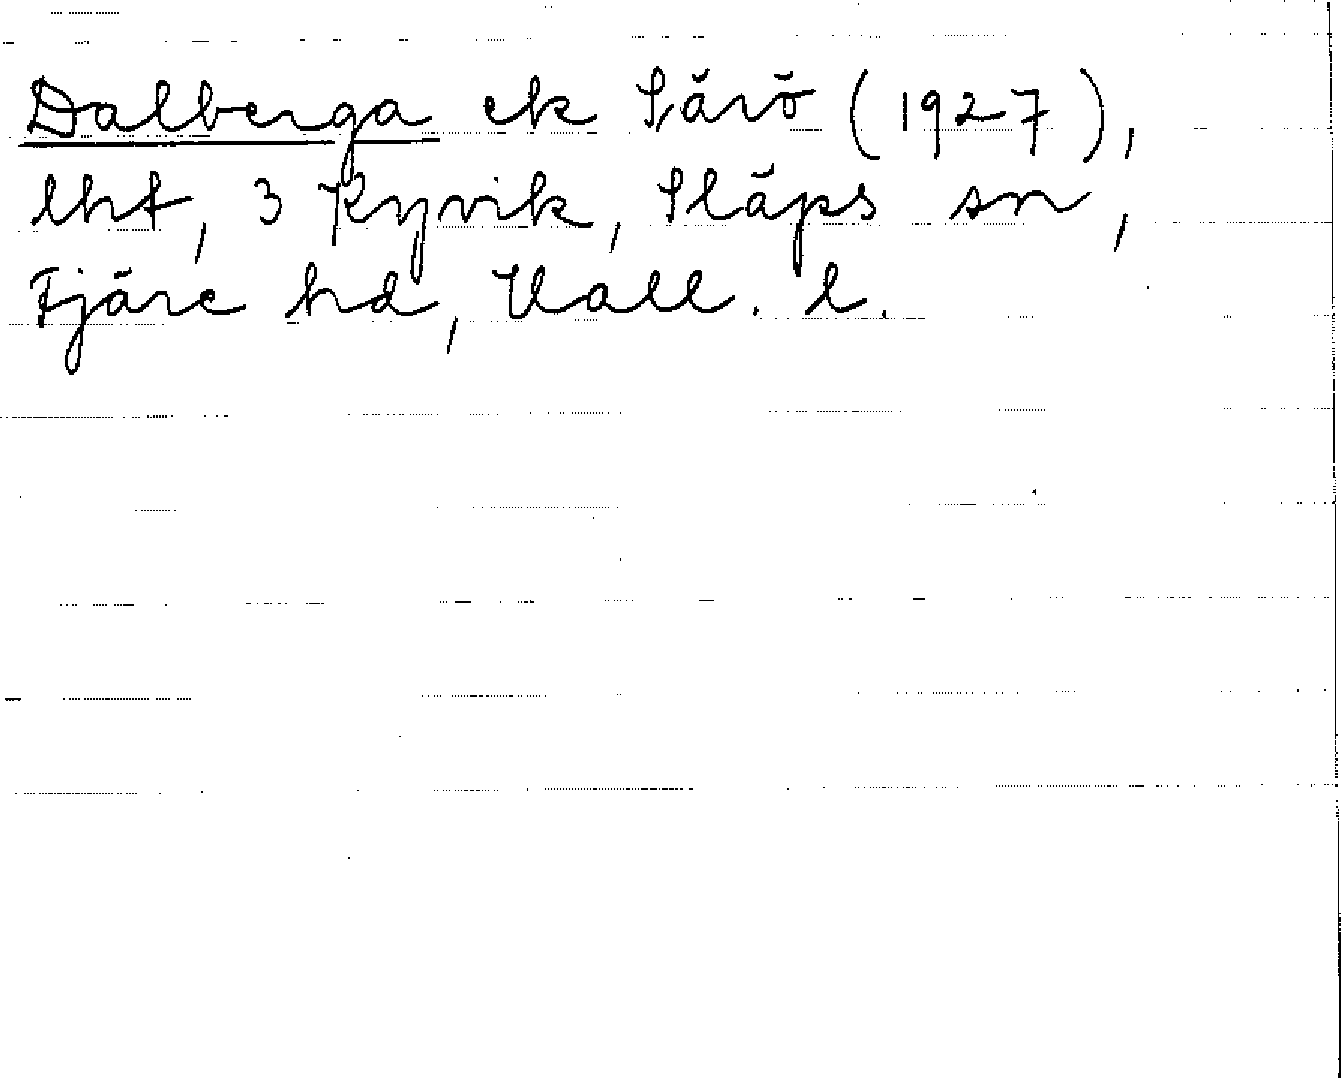 Dalberga ek Särö (1927),
lht, 3 Kyvik, Släps sn,
Fjäre hd, Hall. l.